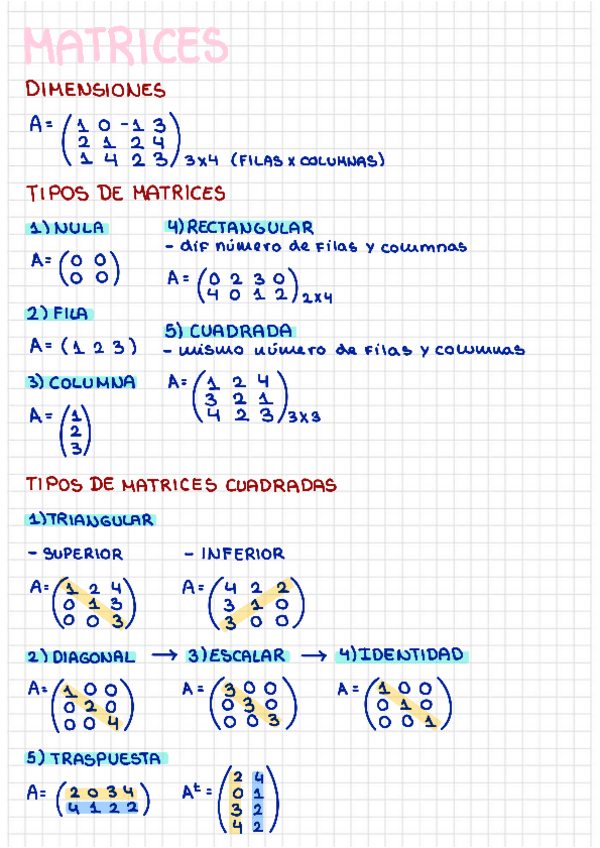 MATRICES
DIMENSIONES
A= (1 0 -1 3
2 1 2 4
1 4 2 3) 3x4 (FILAS x COLUMNAS)
TIPOS DE MATRICES
1) NULA
A= (0 0
0 0)
2) FILA
A= (1 2 3)
3) COLUMNA
A= (1
2
3)
4) RECTANGULAR
- dif número de filas y columnas
A= (0 2 3 0
4 0 1 2) 2x4
5) CUADRADA
- mismo número de filas y columnas
A= (1 2 4
3 2 1
4 2 3) 3x3
TIPOS DE MATRICES CUADRADAS
1) TRIANGULAR
- SUPERIOR
A= (1 2 4
0 1 3
0 0 3)
- INFERIOR
A= (4 2 2
3 1 0
3 0 0)
2) DIAGONAL → 3) ESCALAR → 4) IDENTIDAD
A= (1 0 0
0 2 0
0 0 4)
A= (3 0 0
0 3 0
0 0 3)
A= (1 0 0
0 1 0
0 0 1)
5) TRASPUESTA
A= (2 0 3 4
4 1 2 2)
Aᵗ= (2 4
0 1
3 2
4 2)